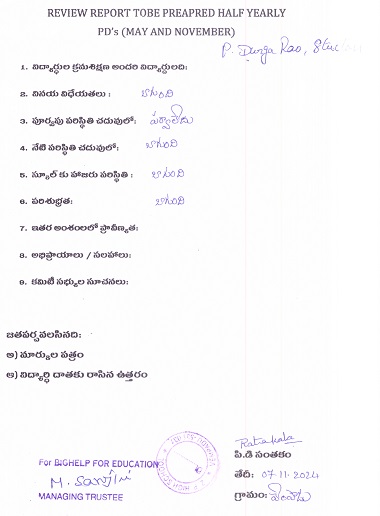 REVIEW REPORT TOBE PREAPRED HALF YEARLY
PD's (MAY AND NOVEMBER)
P. Durga Rao, Student
1. విద్యార్థుల క్రమశిక్షణ అందరి విద్యార్థులది:
2. వినయ విధేయతలు : బాగుంది
3. పూర్వపు పరిస్థితి చదువులో: పర్వాలేదు
4. నేటి పరిస్థితి చదువులో: బాగుంది
5. స్కూల్ కు హాజరు పరిస్థితి : బాగుంది
6. పరిశుభ్రత: బాగుంది
7. ఇతర అంశంలలో ప్రావీణ్యత:
8. అభిప్రాయాలు / సలహాలు:
9. కమిటీ సభ్యుల సూచనలు:
జతపర్చవలసినది:
అ) మార్కుల పత్రం
ఆ) విద్యార్థి దాతకు రాసిన ఉత్తరం
For BIGHELP FOR EDUCATION
MANAGING TRUSTEE
పి.డి సంతకం
తేది: 07-11-2024
గ్రామం: